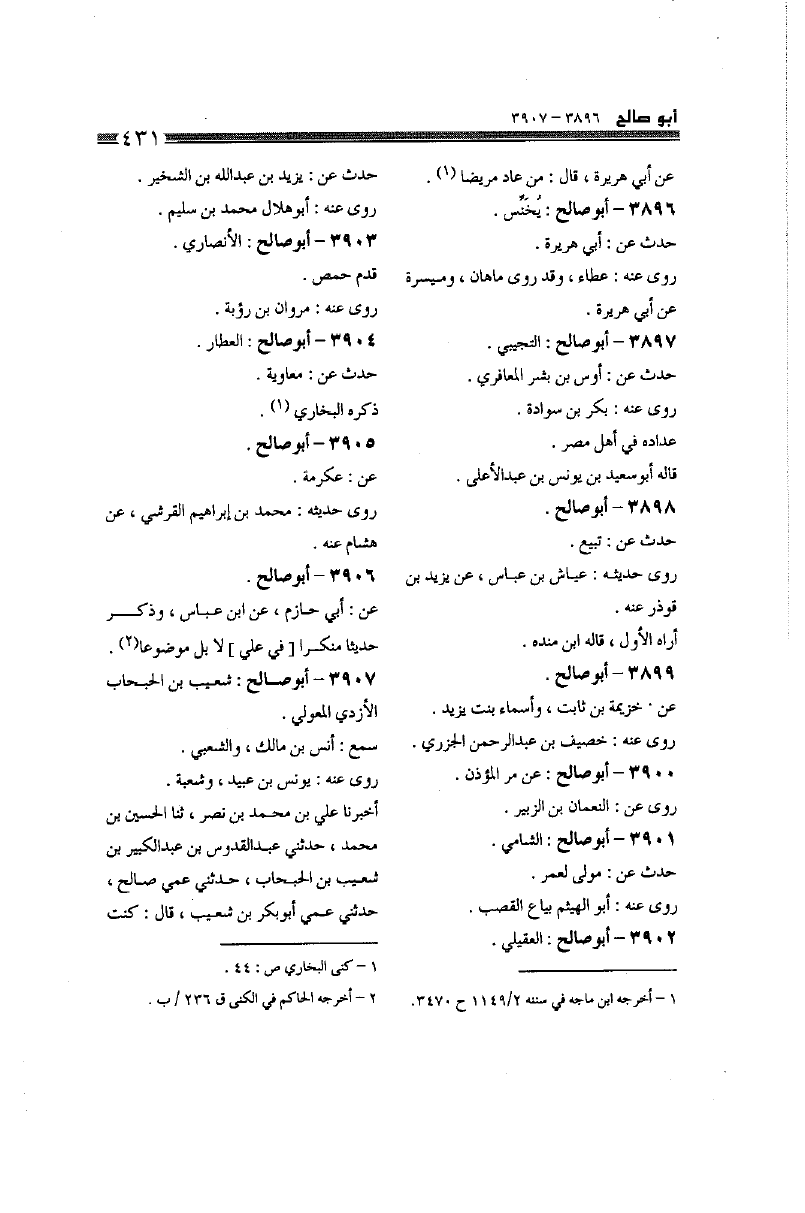 أبو صالح ٣٨٩٦ - ٣٩٠٧
٤٣١
عن أبي هريرة ، قال : من عاد مريضا (١) .
٣٨٩٦ - أبو صالح : يُخَنَّس .
حدث عن : أبي هريرة .
روى عنه : عطاء ، وقد روى ماهان ، وميسرة
عن أبي هريرة .
٣٨٩٧ - أبو صالح : التجيبي .
حدث عن : أوس بن بشر المعافري .
روى عنه : بكر بن سوادة .
عداده في أهل مصر .
قاله أبو سعيد بن يونس بن عبدالأعلى .
٣٨٩٨ - أبو صالح .
حدث عن : تبيع .
روى حديثه : عياش بن عباس ، عن يزيد بن
قوذر عنه .
أراه الأول ، قاله ابن منده .
٣٨٩٩ - أبو صالح .
عن : خزيمة بن ثابت ، وأسماء بنت يزيد .
روى عنه : خصيف بن عبدالرحمن الجزري .
٣٩٠٠ - أبو صالح : عن مر المؤذن .
روى عن : النعمان بن الزبير .
٣٩٠١ - أبو صالح : الشامي .
حدث عن : مولى لعمر .
روى عنه : أبو الهيثم بياع القصب .
٣٩٠٢ - أبو صالح : العقيلي .
١ - أخرجه ابن ماجه في سننه ١١٤٩/٢ ح ٣٤٧٠.
حدث عن : يزيد بن عبدالله بن الشخير .
روى عنه : أبو هلال محمد بن سليم .
٣٩٠٣ - أبو صالح : الأنصاري .
قدم حمص .
روى عنه : مروان بن رؤبة .
٣٩٠٤ - أبو صالح : العطار .
حدث عن : معاوية .
ذكره البخاري (١) .
٣٩٠٥ - أبو صالح .
عن : عكرمة .
روى حديثه : محمد بن إبراهيم القرشي ، عن
هشام عنه .
٣٩٠٦ - أبو صالح .
عن : أبي حازم ، عن ابن عباس ، وذكر
حديثا منكرا [ في علي ] لا بل موضوعا(٢) .
٣٩٠٧ - أبو صالح : شعيب بن الحبحاب
الأزدي المعولي .
سمع : أنس بن مالك ، والشعبي .
روى عنه : يونس بن عبيد ، وشعبة .
أخبرنا علي بن محمد بن نصر ، ثنا الحسين بن
محمد ، حدثني عبدالقدوس بن عبدالكبير بن
شعيب بن الحبحاب ، حدثني عمي صالح ،
حدثني عمي أبو بكر بن شعيب ، قال : كنت
١ - كنى البخاري ص : ٤٤ .
٢ - أخرجه الحاكم في الكنى ق ٢٣٦ / ب .